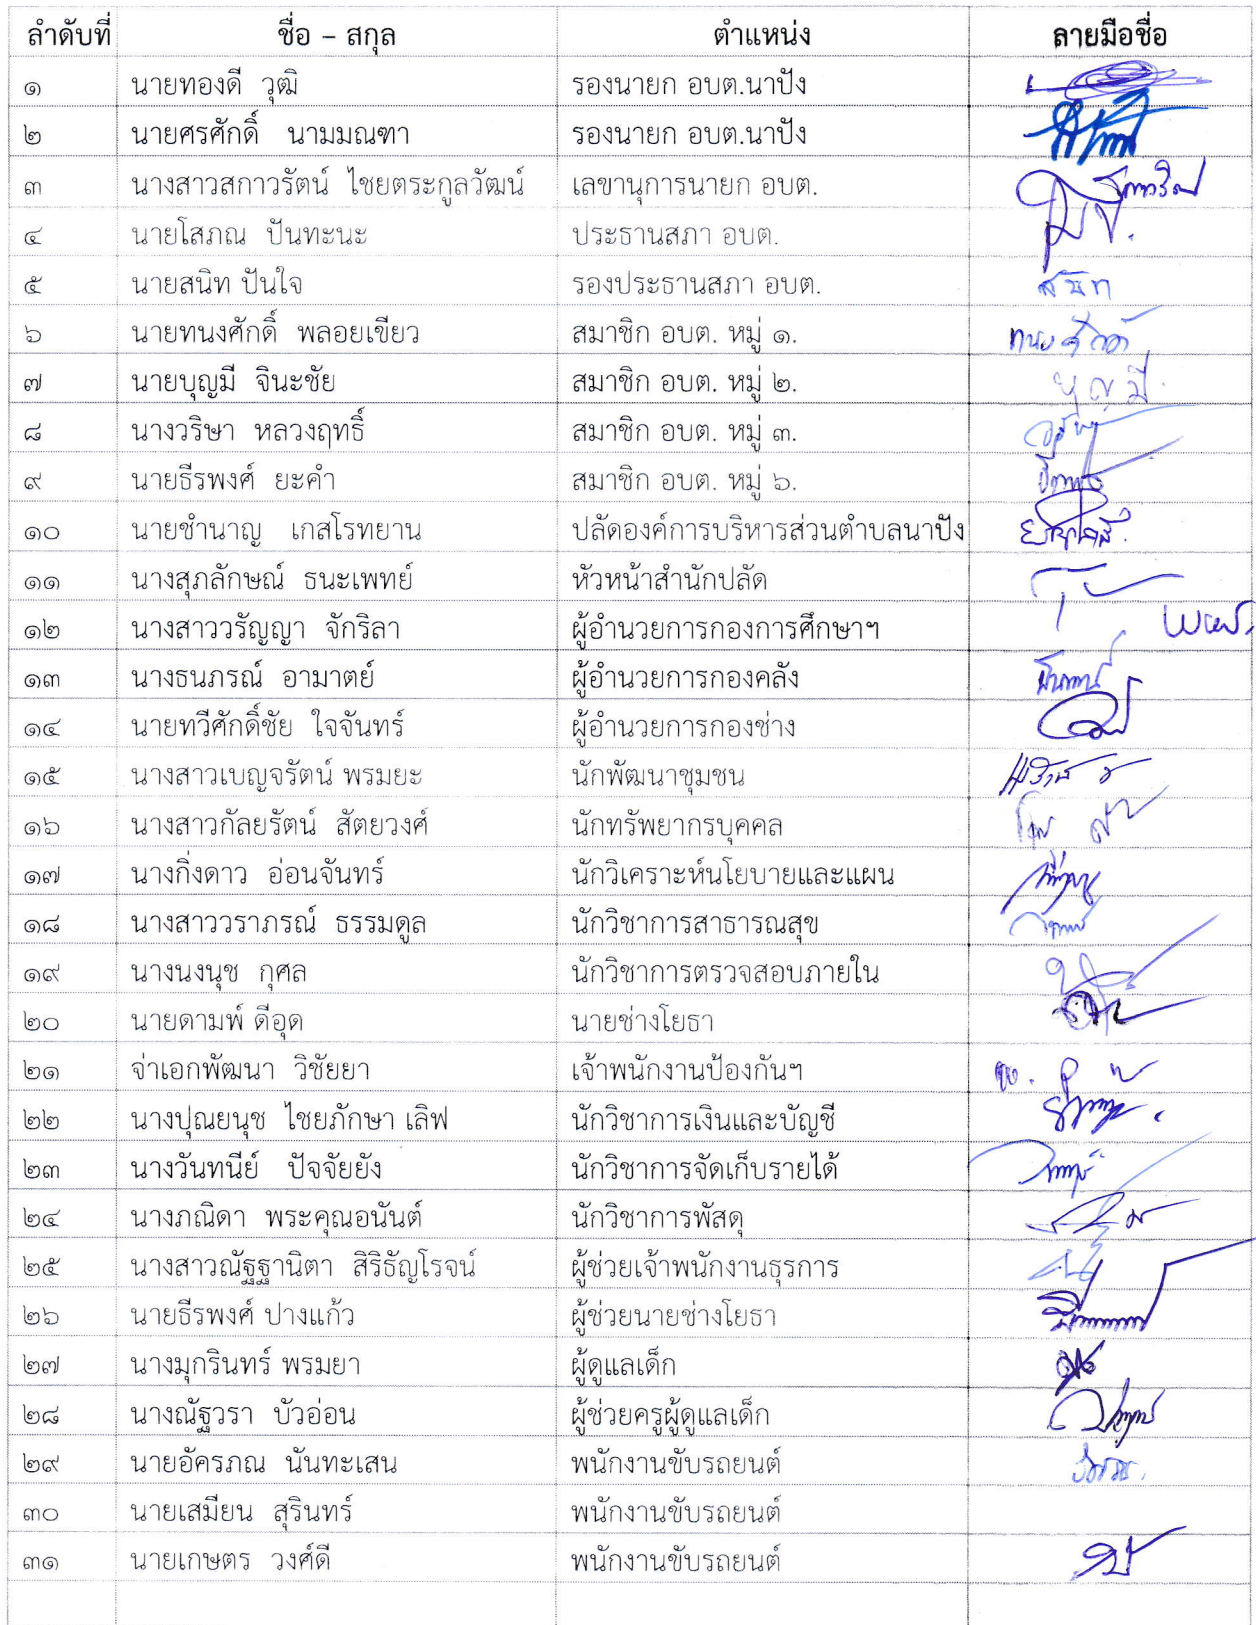 ลำดับที่ ชื่อ – สกุล ตำแหน่ง ลายมือชื่อ
๑ นายทองดี วุฒิ รองนายก อบต.นาปัง
๒ นายศรศักดิ์ นามมณฑา รองนายก อบต.นาปัง
๓ นางสาวสกาวรัตน์ ไชยตระกูลวัฒน์ เลขานุการนายก อบต.
๔ นายโสภณ ปันทะนะ ประธานสภา อบต.
๕ นายสนิท ปันใจ รองประธานสภา อบต. สนิท
๖ นายทนงศักดิ์ พลอยเขียว สมาชิก อบต. หมู่ ๑.
๗ นายบุญมี จินะชัย สมาชิก อบต. หมู่ ๒. บุญมี
๘ นางวริษา หลวงฤทธิ์ สมาชิก อบต. หมู่ ๓.
๙ นายธีรพงศ์ ยะคำ สมาชิก อบต. หมู่ ๖.
๑๐ นายชำนาญ เกสโรทยาน ปลัดองค์การบริหารส่วนตำบลนาปัง
๑๑ นางสุภลักษณ์ ธนะเพทย์ หัวหน้าสำนักปลัด
๑๒ นางสาววรัญญา จักริลา ผู้อำนวยการกองการศึกษาฯ
๑๓ นางธนภรณ์ อามาตย์ ผู้อำนวยการกองคลัง
๑๔ นายทวีศักดิ์ชัย ใจจันทร์ ผู้อำนวยการกองช่าง
๑๕ นางสาวเบญจรัตน์ พรมยะ นักพัฒนาชุมชน
๑๖ นางสาวกัลยรัตน์ สัตยวงศ์ นักทรัพยากรบุคคล
๑๗ นางกิ่งดาว อ่อนจันทร์ นักวิเคราะห์นโยบายและแผน
๑๘ นางสาววราภรณ์ ธรรมดูล นักวิชาการสาธารณสุข
๑๙ นางนงนุช กุศล นักวิชาการตรวจสอบภายใน
๒๐ นายดามพ์ ดีอุด นายช่างโยธา
๒๑ จ่าเอกพัฒนา วิชัยยา เจ้าพนักงานป้องกันฯ
๒๒ นางปุณยนุช ไชยภักษา เลิฟ นักวิชาการเงินและบัญชี
๒๓ นางวันทนีย์ ปัจจัยยัง นักวิชาการจัดเก็บรายได้
๒๔ นางภณิดา พระคุณอนันต์ นักวิชาการพัสดุ
๒๕ นางสาวณัฐฐานิตา สิริธัญโรจน์ ผู้ช่วยเจ้าพนักงานธุรการ
๒๖ นายธีรพงศ์ ปางแก้ว ผู้ช่วยนายช่างโยธา
๒๗ นางมุกรินทร์ พรมยา ผู้ดูแลเด็ก
๒๘ นางณัฐวรา บัวอ่อน ผู้ช่วยครูผู้ดูแลเด็ก
๒๙ นายอัครภณ นันทะเสน พนักงานขับรถยนต์
๓๐ นายเสมียน สุรินทร์ พนักงานขับรถยนต์
๓๑ นายเกษตร วงศ์ดี พนักงานขับรถยนต์